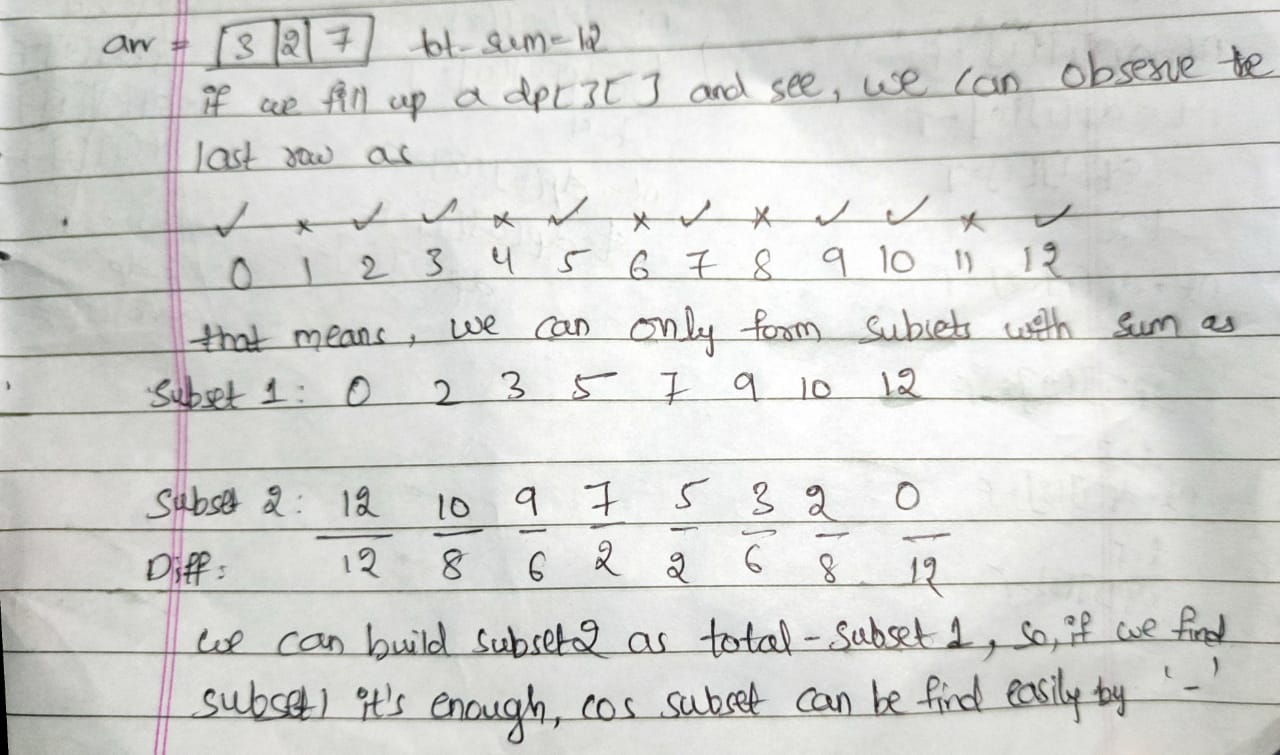 arr = [3|2|7] tot-sum=12
if we fill up a dp[ ][ ] and see, we can observe the
last row as
✓ × ✓ ✓ × ✓ × ✓ × ✓ ✓ × ✓
0 1 2 3 4 5 6 7 8 9 10 11 12
that means, we can only form subsets with sum as
Subset 1: 0 2 3 5 7 9 10 12
Subset 2: 12 10 9 7 5 3 2 0
Diff: 12 8 6 2 2 6 8 12
we can build subset2 as total - subset 1, so, if we find
subset1 it's enough, cos subset can be find easily by '-'